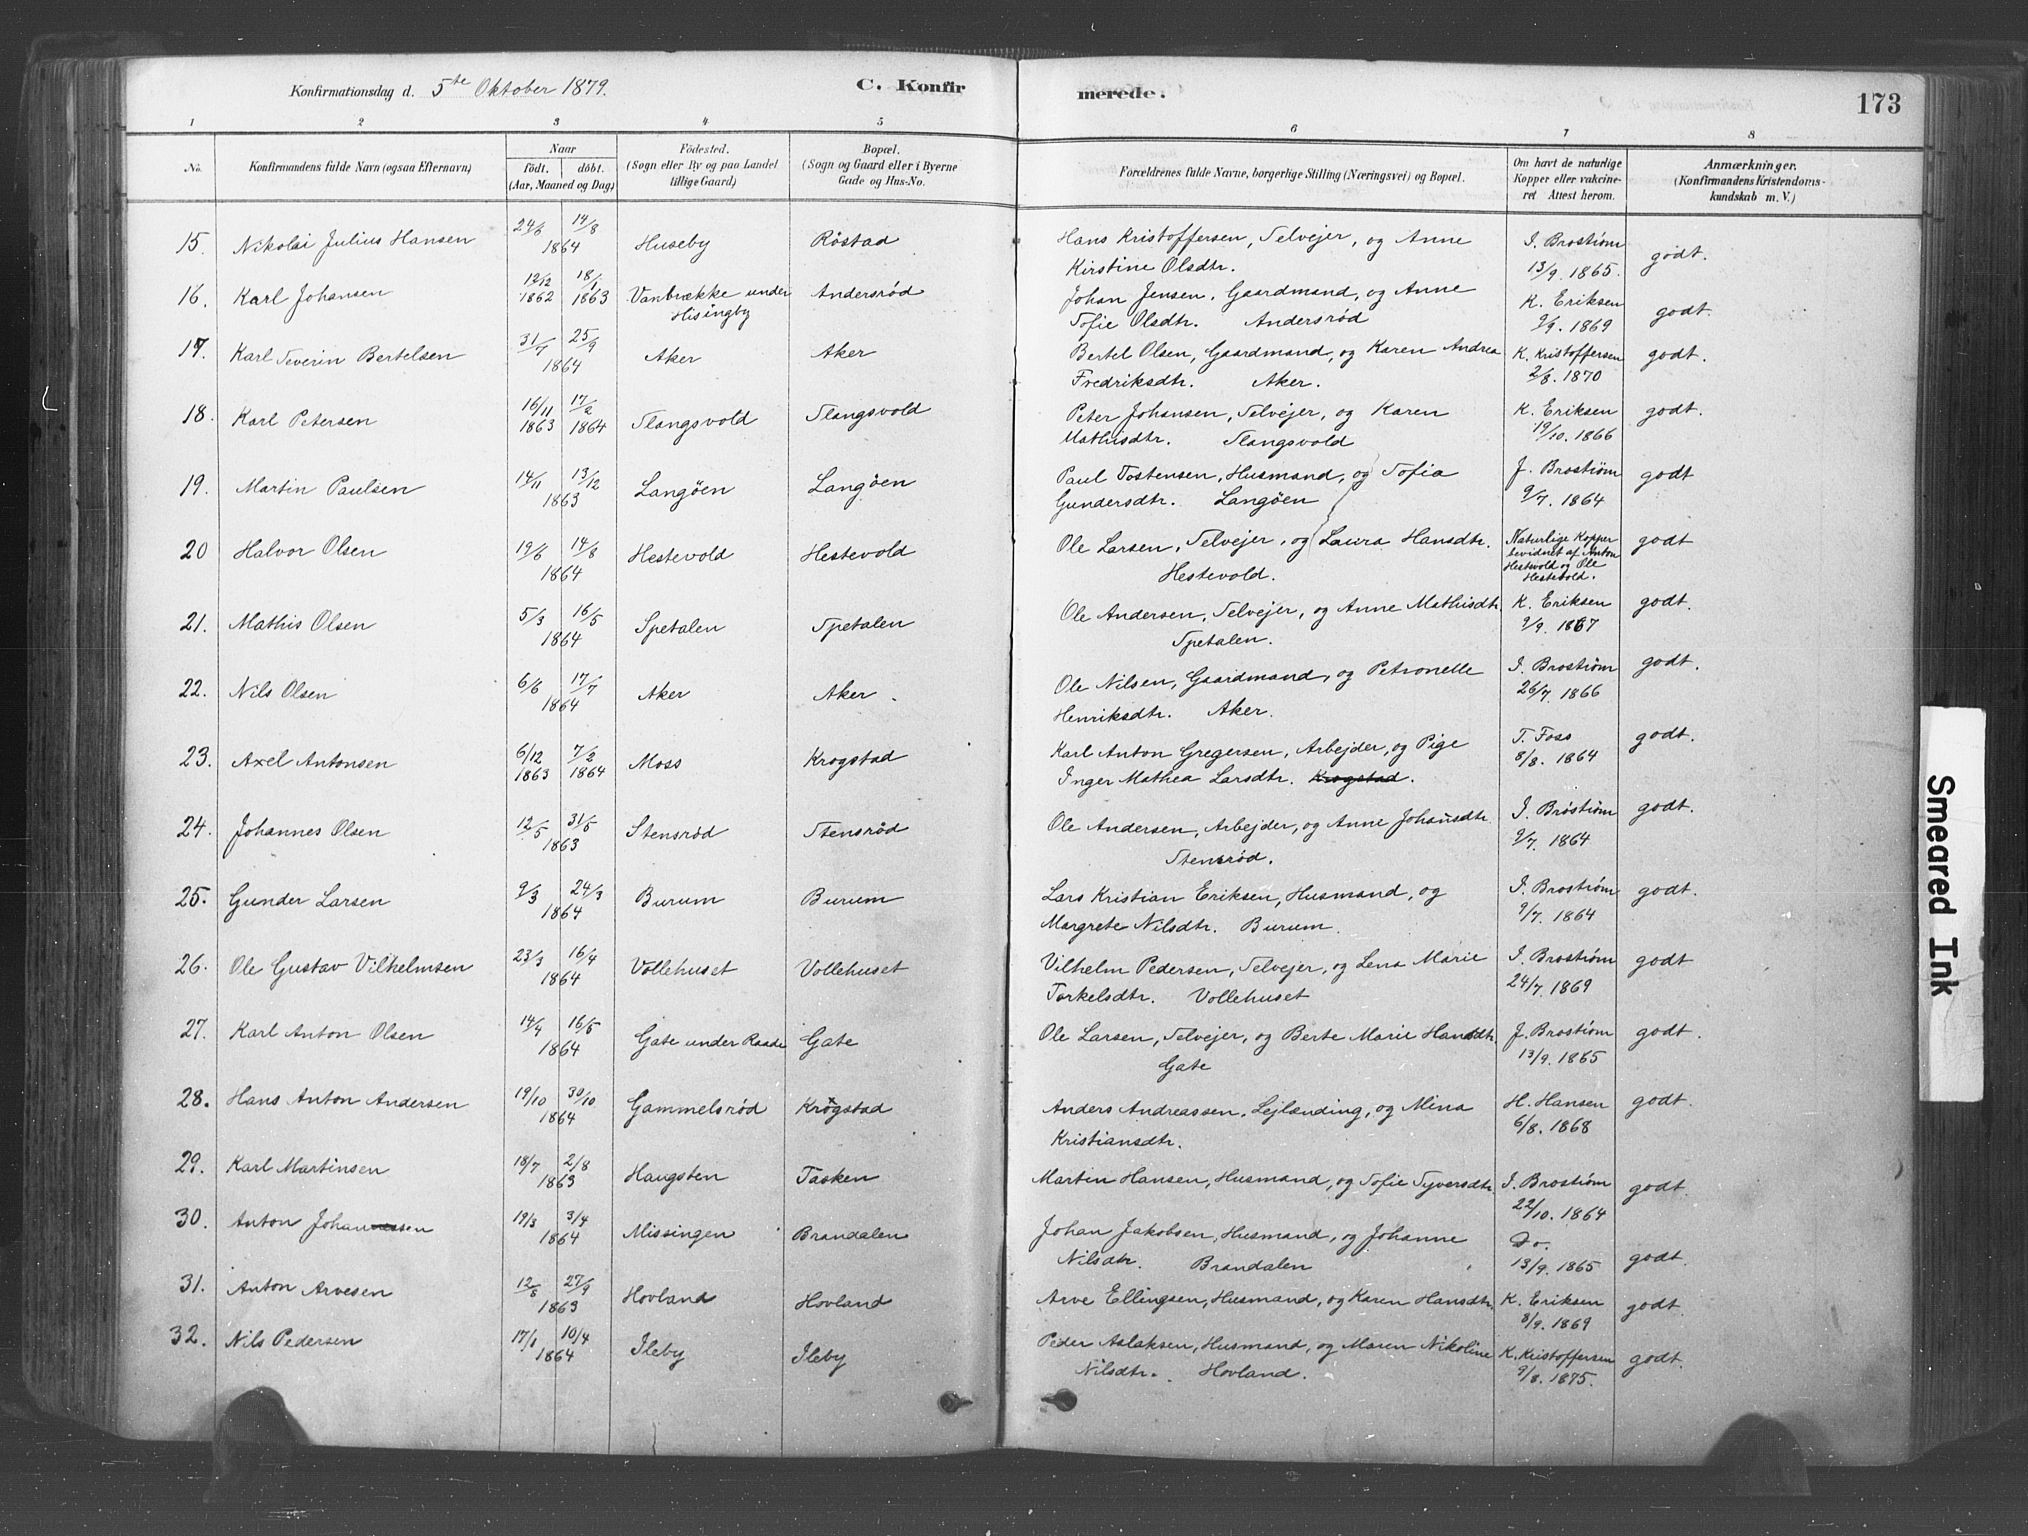 Konfirmationsdag d. 5te Oktober 1879. C. Konfirmerede. 173
1 2 3 4 5 6 7 8
No. Konfirmandens fulde Navn (ogsaa Efternavn) Naar født. døbt. (Aar, Maaned og Dag) Fødested. (Sogn eller By og paa Landet tillige Gaard) Bopæl. (Sogn og Gaard eller i Byerne Gade og Hus-No. Forældrenes fulde Navne, borgerlige Stilling (Næringsvei) og Bopæl. Om havt de naturlige Kopper eller vakcineret Attest herom. Anmærkninger. (Konfirmandens Kristendomskundskab m. V.)
15. Nikolai Julius Hansen 24/6 14/8 1864 Huseby Röstad Hans Kristoffersen, Selvejer, og Anne Kirstine Olsdtr. I. Broström 13/9. 1865. godt.
16. Karl Johansen 12/12 1862 18/1 1863 Vanbrække under Hisingby Andersröd Johan Jensen, Gaardmand, og Anne Sofie Olsdtr. Andersröd K. Eriksen 9/9. 1869 godt.
17. Karl Severin Bertelsen 31/7 25/9 1864 Aker Aker Bertel Olsen, Gaardmand, og Karen Andrea Fredriksdtr. Aker. K. Kristoffersen 2/8. 1870 godt.
18. Karl Petersen 16/11 1863 17/2 1864 Slangsvold Slangsvold Peter Johansen, Selvejer, og Karen Mathisdtr. Slangsvold K. Eriksen 19/10. 1866 godt.
19. Martin Paulsen 14/11 13/12 1863 Langöen Langöen Paul Tostensen, Husmand, og Sofia Gundersdtr. Langöen J. Broström 9/7. 1864 godt
20 Halvor Olsen 19/6 14/8 1864 Hestevold Hestevold Ole Larsen, Selvejer, og Laura Hansdtr. Hestevold. Naturlige Kopper bevidnet af Anton Hestevold og Ole Hestevold. godt
21. Mathis Olsen 5/3 16/5 1864 Spetalen Spetalen Ole Andersen, Selvejer, og Anne Mathisdtr. Spetalen. K. Eriksen 9/9. 1867 godt.
22. Nils Olsen 6/6 17/7 1864 Aker Aker. Ole Nilsen, Gaardmand, og Petronelle Henriksdtr. Aker. I. Broström 26/7. 1866 godt.
23. Axel Antonsen 6/12 1863 7/2 1864 Moss Krogstad Karl Anton Gregersen, Arbejder, og Pige Inger Mathea Larsdtr. Krogstad. T. Foss 8/8. 1864 godt.
24. Johannes Olsen 12/5 31/5 1863 Stensröd Stensröd Ole Andersen, Arbejder, og Anne Johansdtr. Stensröd. I. Broström 9/7. 1864 godt.
25. Gunder Larsen 9/3 24/3 1864 Burum Burum Lars Kristian Eriksen, Husmand, og Margrete Nilsdtr. Burum. I. Broström 9/7. 1864 godt.
26. Ole Gustav Vilhelmsen 23/3 16/4 1864 Vollehuset Vollehuset Vilhelm Pedersen, Selvejer, og Lena Marie Torkelsdtr. Vollehuset I. Broström 24/7. 1869 godt
27. Karl Anton Olsen 14/4 16/5 1864 Gate under Raade Gate Ole Larsen, Selvejer, og Berte Marie Hansdtr. Gate J. Broström 13/9. 1865 godt.
28. Hans Anton Andersen 19/10 30/10 1864 Gammelsröd Krogstad Anders Andreassen, Lejlænding, og Mina Kristiansdtr. H. Hansen 6/8. 1868 godt.
29. Karl Martinsen 18/7 2/8 1863 Haugsten Tasken Martin Hansen, Husmand, og Sofie Syversdtr. I. Broström 22/10. 1864 godt.
30. Anton Johannessen 19/3 3/4 1864 Missingen Brandalen Johan Jakobsen, Husmand, og Johanne Nilsdtr. Brandalen Do. 13/9. 1865 godt.
31. Anton Arvesen 12/8 27/9 1863 Hovland Hovland Arve Ellingsen, Husmand, og Karen Hansdtr. K. Eriksen 8/9. 1869 godt
32. Nils Pedersen 17/1 10/4 1864 Ileby Ileby Peder Aslaksen, Husmand, og Maren Nikoline Nilsdtr. Hovland. K. Kristoffersen 9/8. 1875. godt.
Smeared Ink